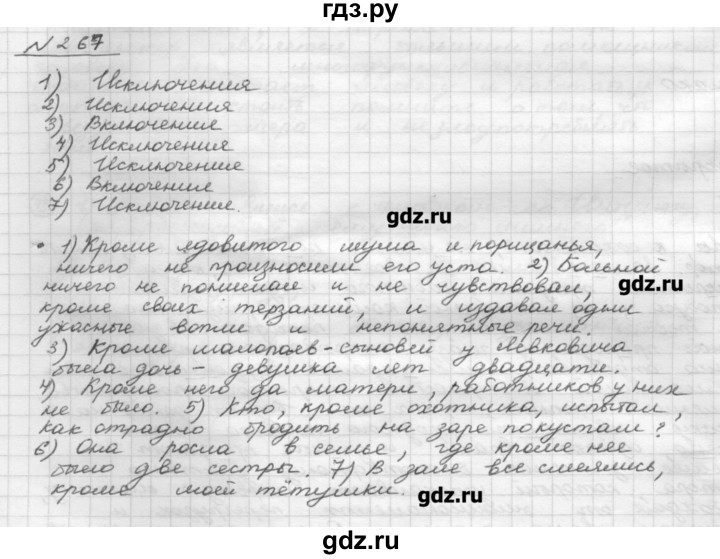 гдз.ру
N 267
1) Исключения
2) Исключения
3) Включение
4) Исключения
5) Исключение
6) Включение
7) Исключение.
gdz.ru
• 1) Кроме ядовитого шума и порицанья,
ничего не произносили его уста. 2) Больной
ничего не понимал и не чувствовал,
gdz.ru
кроме своих терзаний, и издавал одни
ужасные вопли и непонятные речи.
3) Кроме шалопаев-сыновей у Левковича
была дочь – девушка лет двадцати.
4) Кроме него да матери, работников у них
не было. 5) Кто, кроме охотника, испытал,
как отрадно бродить на заре по кустам?
6) Она росла в семье, где кроме неё
было две сестры. 7) В зале все смеялись,
кроме моей тётушки.
gdz.ru